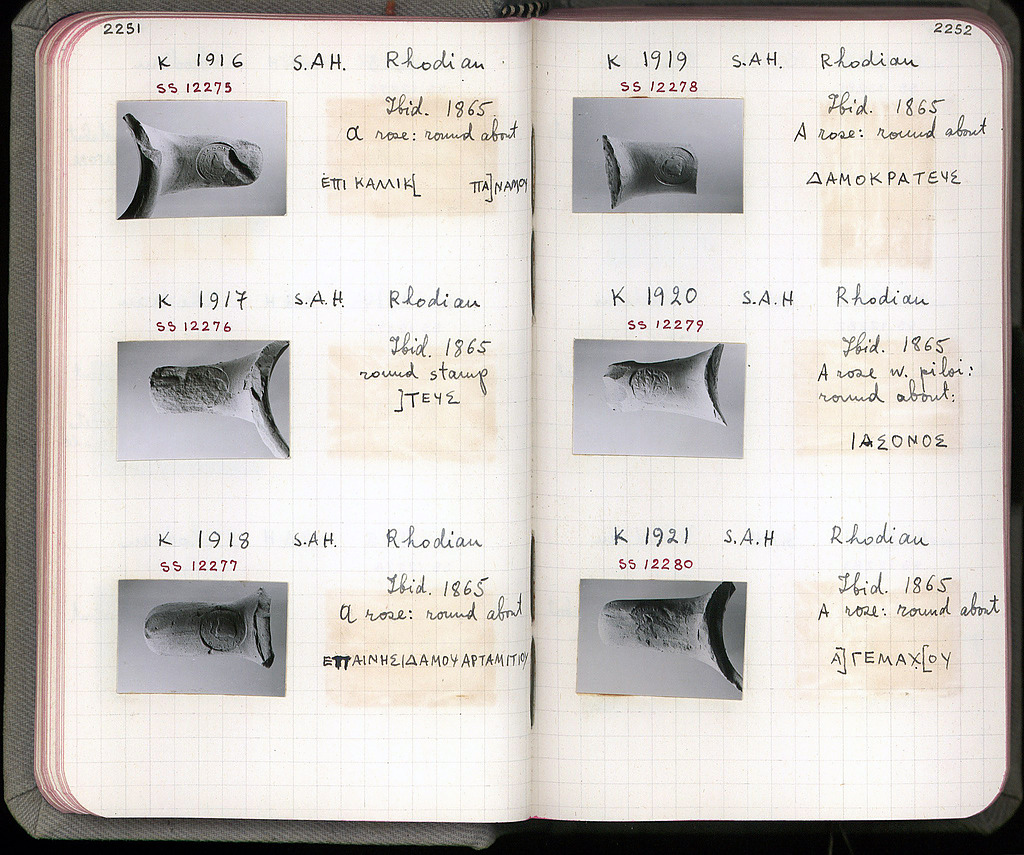 2251
K 1916 S.A.H. Rhodian
SS 12275
Ibid. 1865
a rose: round about
ΕΠΙ ΚΑΛΛΙΚ[ ΠΑ]ΝΑΜΟΥ
K 1917 S.A.H Rhodian
SS 12276
Ibid. 1865
round stamp
]ΤΕΥΣ
K 1918 S.A.H. Rhodian
SS 12277
Ibid. 1865
a rose: round about
ΕΠΙΑΙΝΗΣΙΔΑΜΟΥΑΡΤΑΜΙΤΙΟΥ
2252
K 1919 S.A.H. Rhodian
SS 12278
Ibid. 1865
A rose: round about
ΔΑΜΟΚΡΑΤΕΥΣ
K 1920 S.A.H Rhodian
SS 12279
Ibid. 1865
A rose w. piloi:
round about:
ΙΑΣΟΝΟΣ
K 1921 S.A.H Rhodian
SS 12280
Ibid. 1865
A rose: round about
Α]ΓΕΜΑΧ[ΟΥ